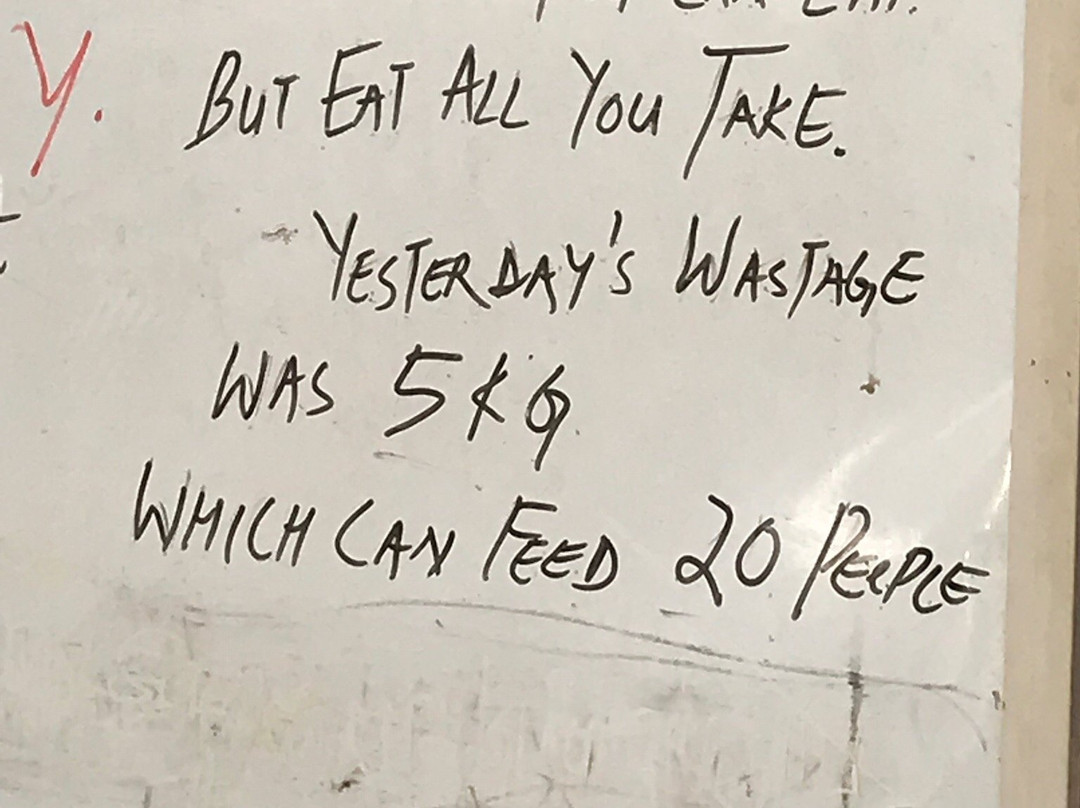 Y. BUT EAT ALL YOU TAKE.
YESTERDAY'S WASTAGE
WAS 5 KG
WHICH CAN FEED 20 PEOPLE